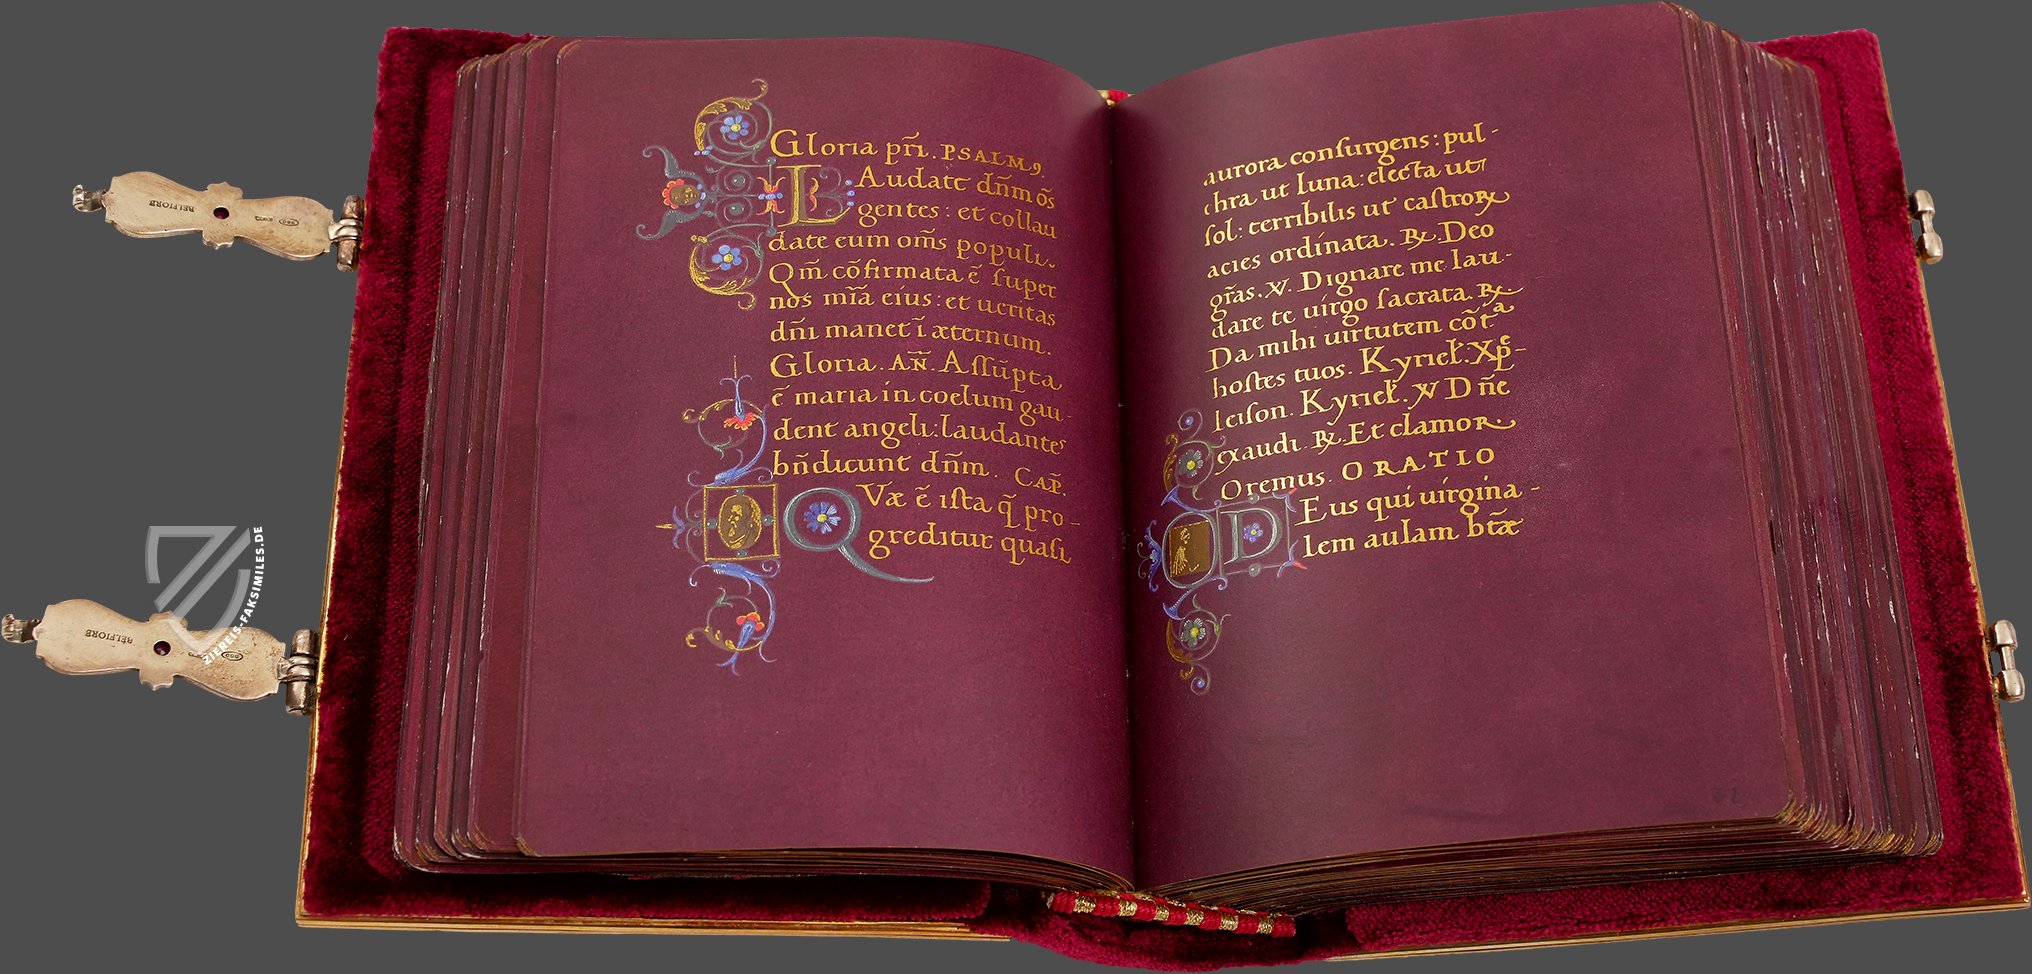 Gloria pr̃i. PSALM9.
LAudate dñm õs
gentes: et collau
date eum om̃s populi.
Qm̃ cõfirmata ẽ ſuper
nos mĩa eius: et ueritas
dñi manet ĩ æternum.
Gloria. AÑ. Aſſũpta
ẽ maria in coelum gau-
dent angeli: laudantes
bñdicunt dñm. CAP̃.
QVæ ẽ iſta q̃ pro-
greditur quaſi
aurora conſurgens: pul-
chra ut luna: electa ut
ſol: terribilis ut caſtroꝝ
acies ordinata. ℟. Deo
gr̃as. ℣. Dignare me lau-
dare te uirgo ſacrata. ℟.
Da mihi uirtutem cõtª
hoſtes tuos. Kyriel̃. Xpẽ-
leiſon. Kyriel̃. ℣ Dñe
exaudi. ℟. Et clamor
Oremus. ORATIO
DEus qui uirgina-
lem aulam btæ̃
BELFIORE
BELFIORE
800
ZIEREIS-FAKSIMILES.DE